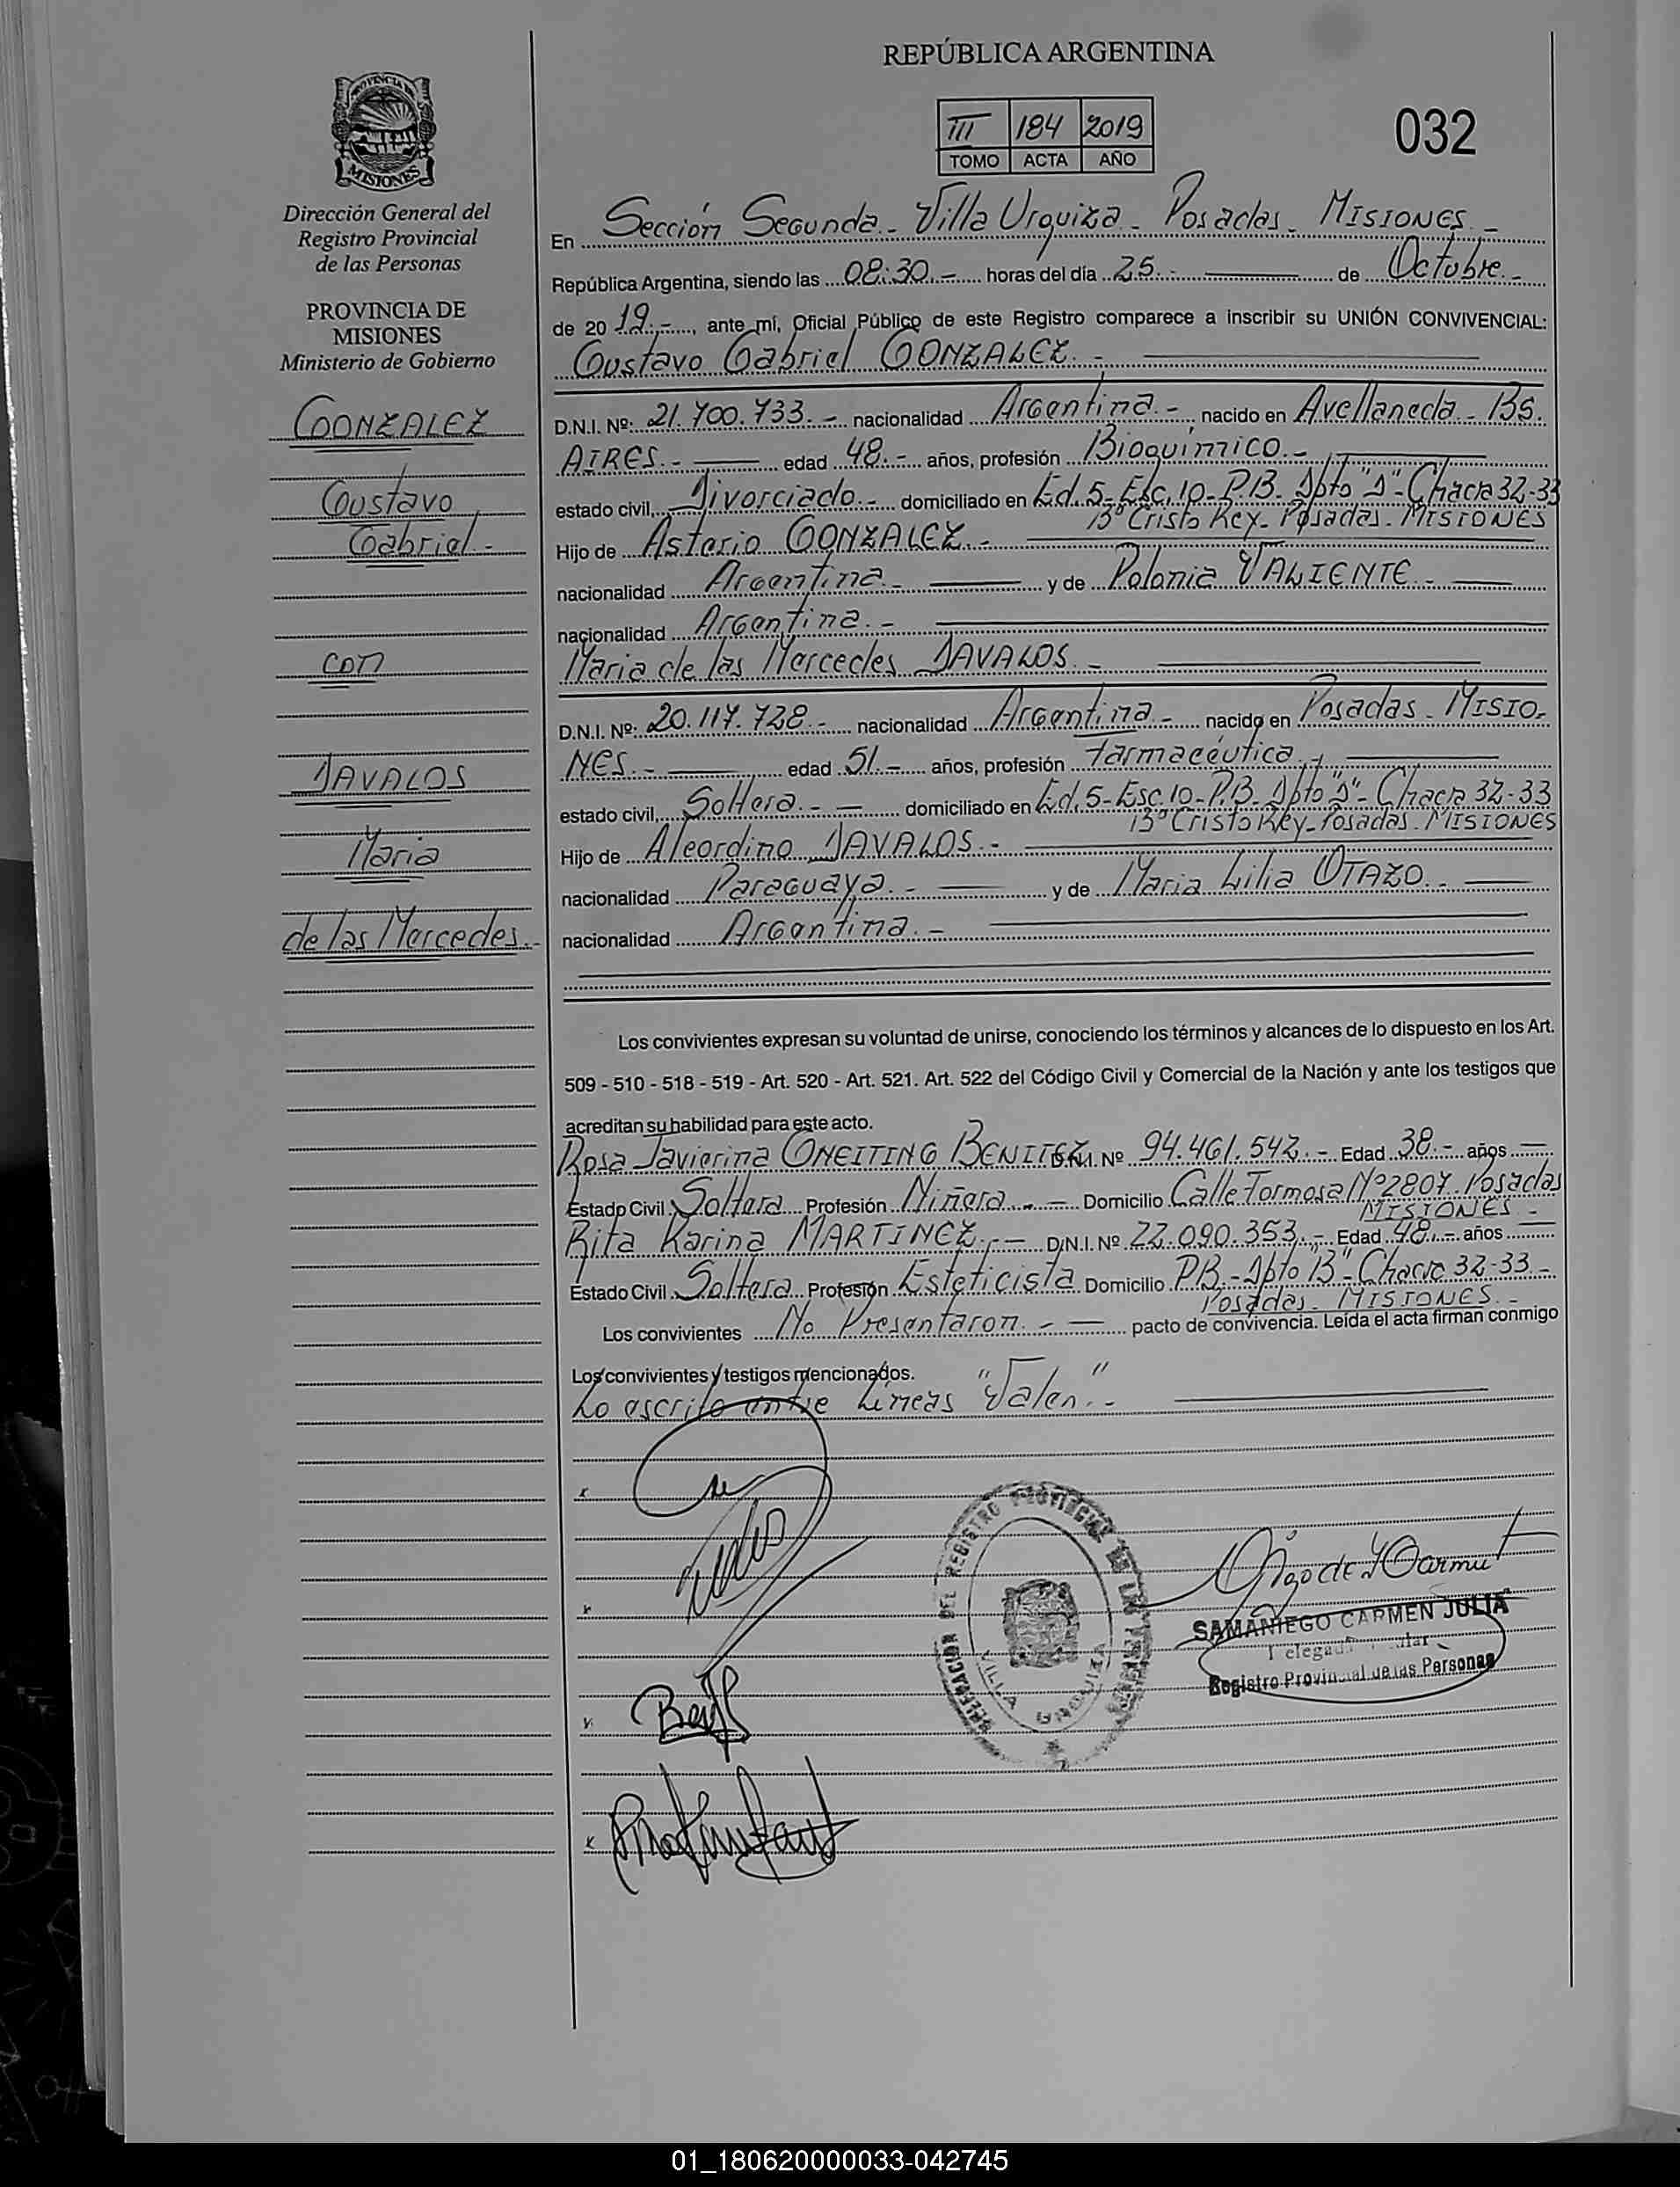 REPÚBLICA ARGENTINA
III 184 2019
TOMO ACTA AÑO
032
PROVINCIA
MISIONES
Dirección General del
Registro Provincial
de las Personas
PROVINCIA DE
MISIONES
Ministerio de Gobierno
GONZALEZ
Gustavo
Gabriel.-
con
DAVALOS
Maria
de las Mercedes.-
En Sección Segunda.- Villa Urquiza - Posadas - MISIONES -
República Argentina, siendo las 08:30.- horas del día 25.- de Octubre.-
de 20 19.-, ante mí, Oficial Público de este Registro comparece a inscribir su UNIÓN CONVIVENCIAL:
Gustavo Gabriel GONZALEZ.-
D.N.I. Nº: 21.700.733.- nacionalidad Argentina.- nacido en Avellaneda - Bs.
AIRES.- edad 48.- años, profesión Bioquímico.-
estado civil, Divorciado.- domiciliado en Ed. 5- Esc. 10- P.B. Dpto "D"- Chacra 32-33
Bº Cristo Rey- Posadas - MISIONES
Hijo de Asterio GONZALEZ.-
nacionalidad Argentina.- y de Polonia VALIENTE.-
nacionalidad Argentina.-
Maria de las Mercedes DAVALOS.-
D.N.I. Nº: 20.117.728.- nacionalidad Argentina.- nacido en Posadas - MISIO-
NES.- edad 51.- años, profesión Farmacéutica.-
estado civil, Soltera.- domiciliado en Ed. 5- Esc. 10- P.B- Dpto "D"- Chacra 32-33
Bº Cristo Rey- Posadas - MISIONES
Hijo de Aleordino DAVALOS.-
nacionalidad Paraguaya.- y de Maria Lilia OTAZO.-
nacionalidad Argentina.-
Los convivientes expresan su voluntad de unirse, conociendo los términos y alcances de lo dispuesto en los Art.
509 - 510 - 518 - 519 - Art. 520 - Art. 521. Art. 522 del Código Civil y Comercial de la Nación y ante los testigos que
acreditan su habilidad para este acto.
Rosa Javierina ONEITING BENITEZ D.N.I. Nº 94.461.542.- Edad 38.- años
Estado Civil Soltera Profesión Niñera.- Domicilio Calle Formosa Nº 2807- Posadas
MISIONES -
Rita Karina MARTINEZ.- D.N.I. Nº 22.090.353.- Edad 48.- años
Estado Civil Soltera Profesión Esteticista Domicilio PB.- Dpto "B"- Chacra 32-33 -
Posadas - MISIONES.-
Los convivientes No Presentaron.- pacto de convivencia. Leída el acta firman conmigo
Los convivientes y testigos mencionados.
Lo escrito entre Lineas "Valen".-
DELEGACION DEL REGISTRO PROVINCIAL DE LAS PERSONAS
VILLA URQUIZA
SAMANIEGO CARMEN JULIA
Registro Provincial de las Personas
01_180620000033-042745